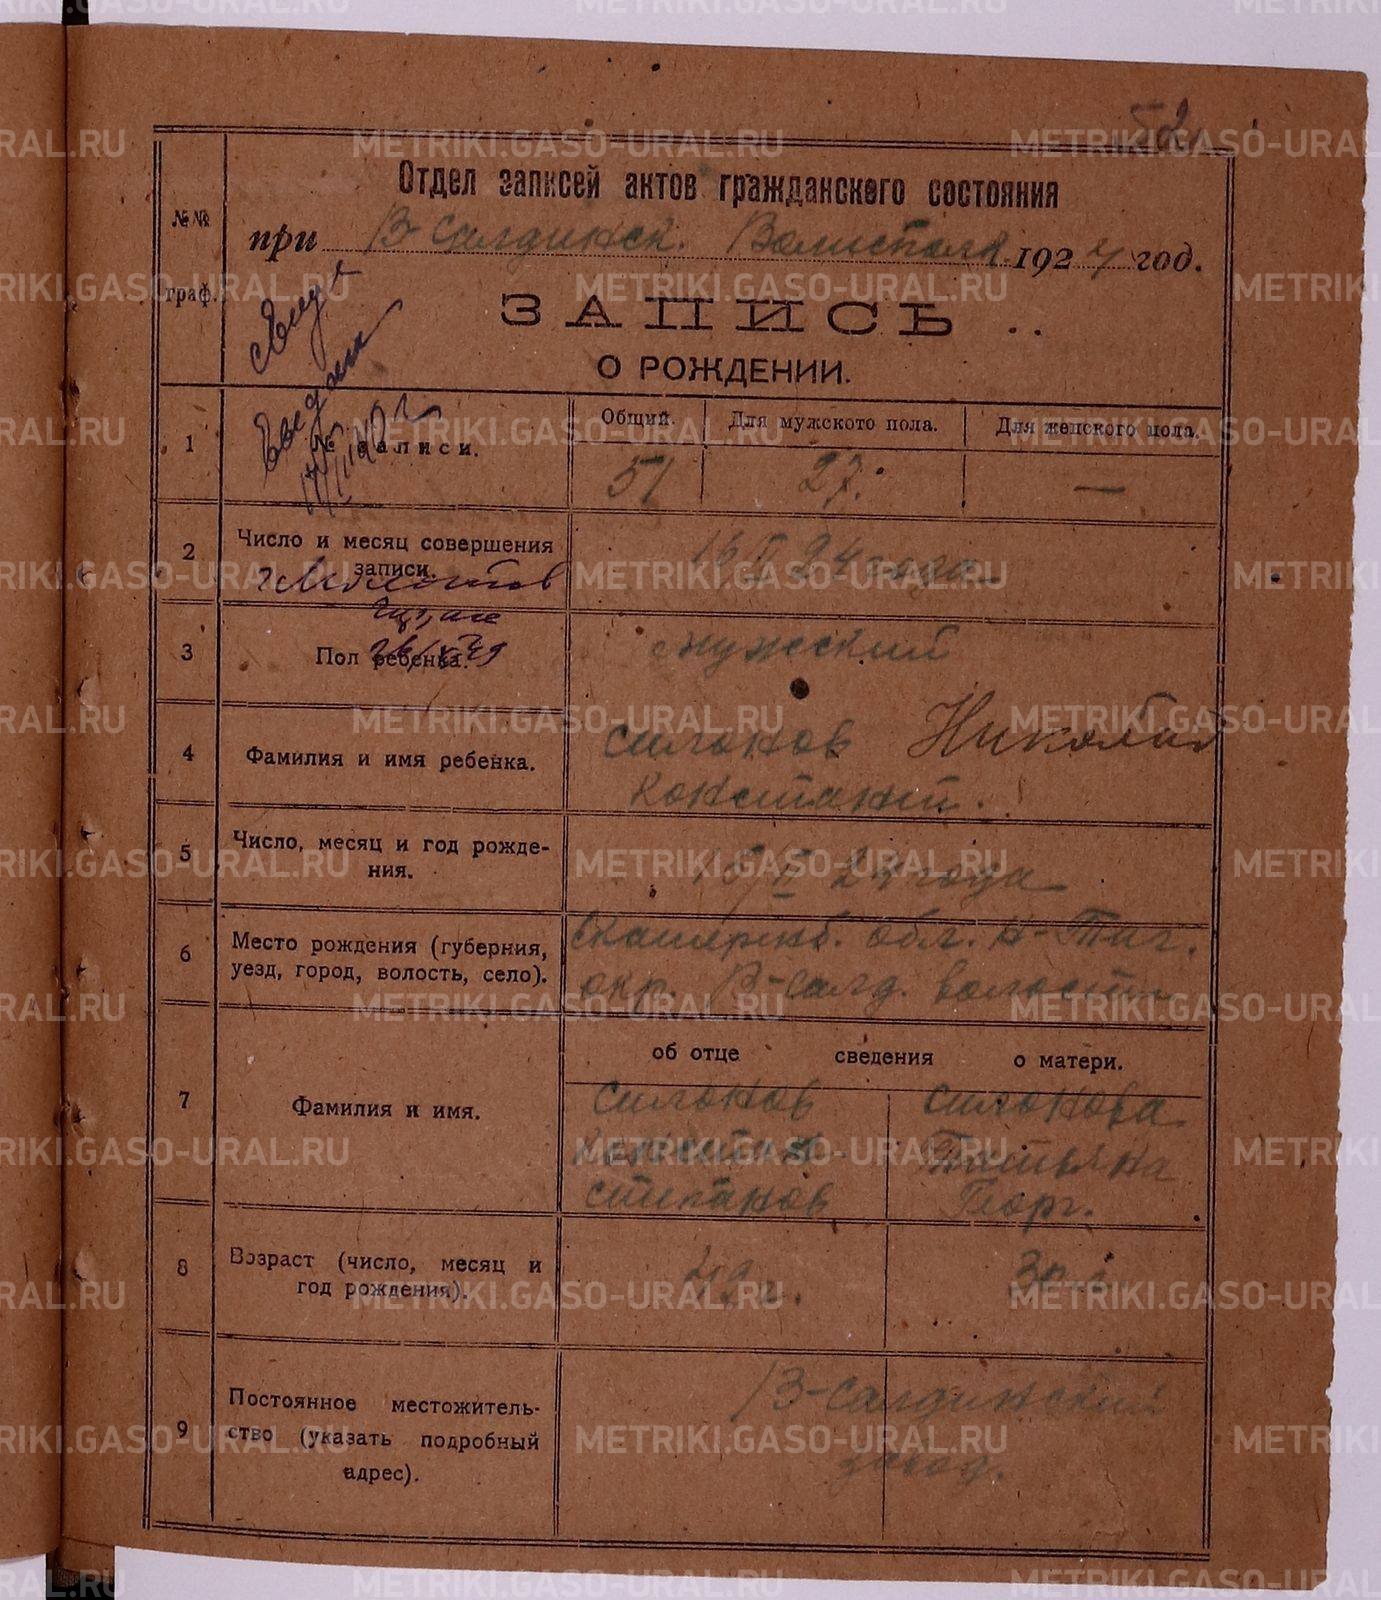 52
Отдел записей актов гражданского состояния
№№ граф.
при В-Салдинск. 1924 год.
ЗАПИСЬ
О РОЖДЕНИИ.
1 № записи.
Общий. Для мужского пола. Для женского пола.
51 27. —
2 Число и месяц совершения записи.
16/II 24 года
3 Пол ребенка.
мужской
4 Фамилия и имя ребенка.
Силонов Николай
Констант.
5 Число, месяц и год рождения.
24 года
6 Место рождения (губерния, уезд, город, волость, село).
Екатеринб. обл. Н-Таг.
окр. В-Салд. волости
об отце сведения о матери.
7 Фамилия и имя.
Силонов Силонова
Констан Татьяна
Степанов Георг.
8 Возраст (число, месяц и год рождения).
30 л.
9 Постоянное местожительство (указать подробный адрес).
В-Салдинский
завод.
METRIKI.GASO-URAL.RU